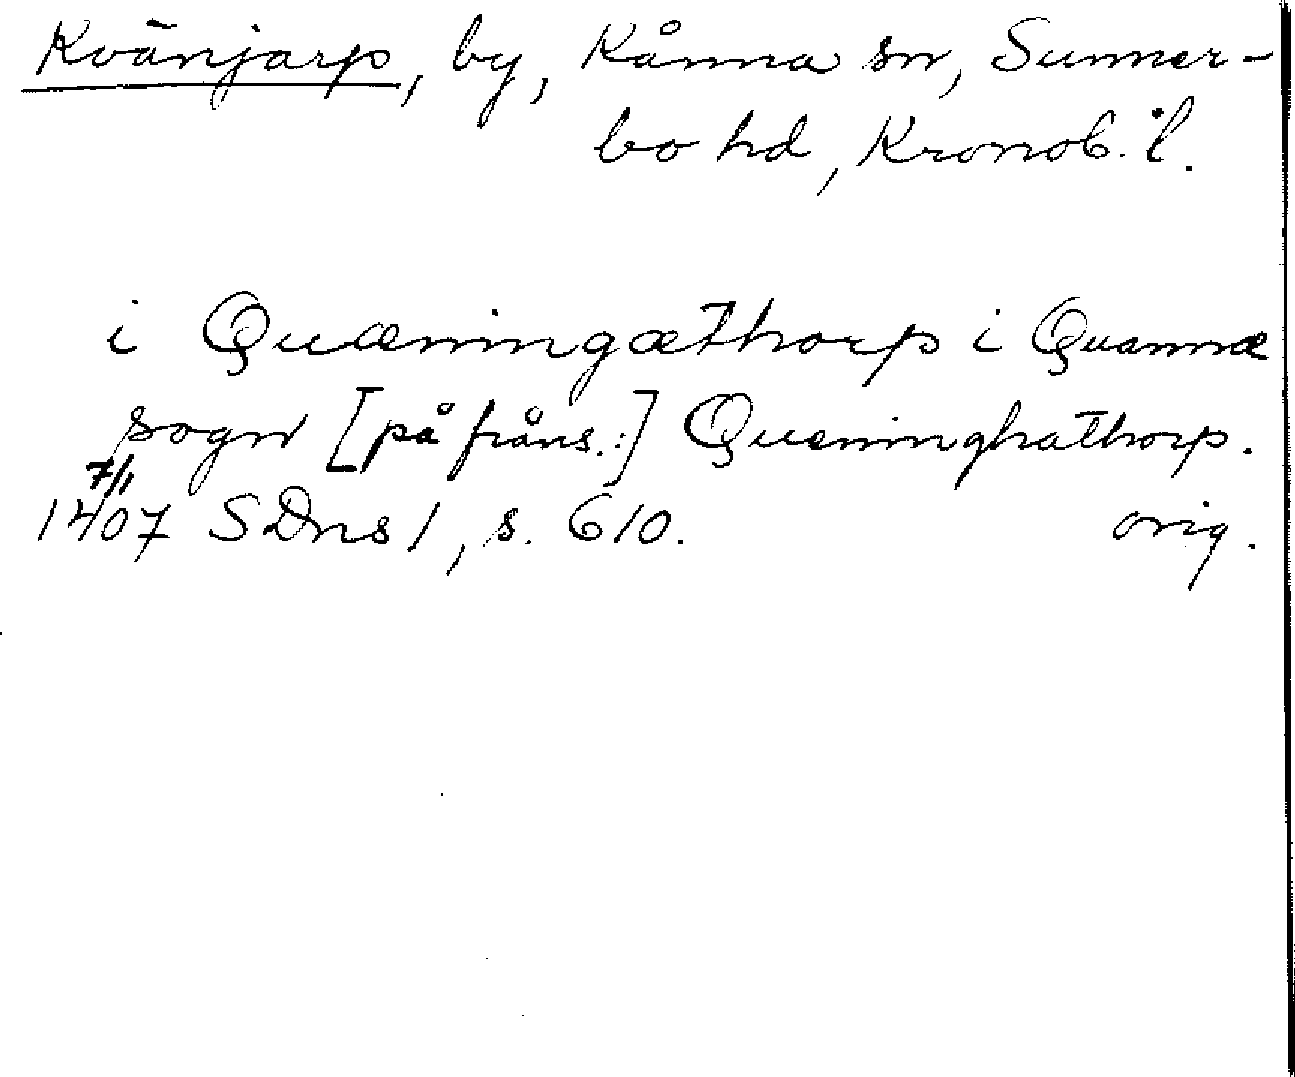 Kvänjarp, by, Kånna sn, Sunner-
bo hd, Kronob. l.
i Quæningæthorp i Quannæ
sogn [på fråns.:] Quæninghathorp.
7/1
1407 SDns 1, s. 610. orig.